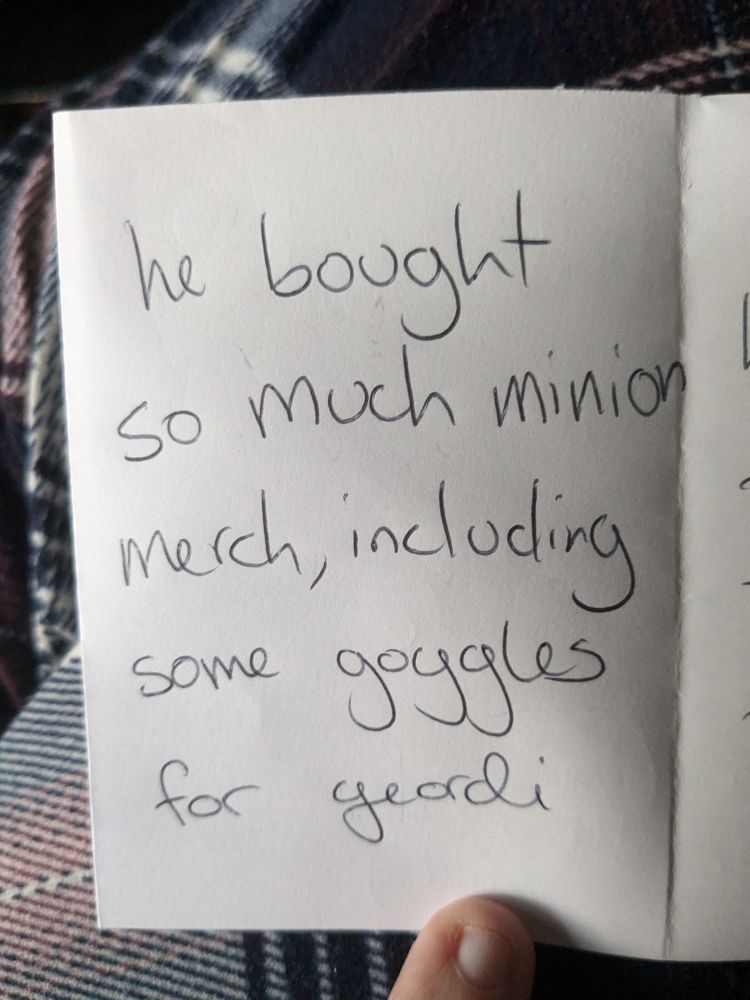 he bought
so much minion
merch, including
some goggles
for geordi